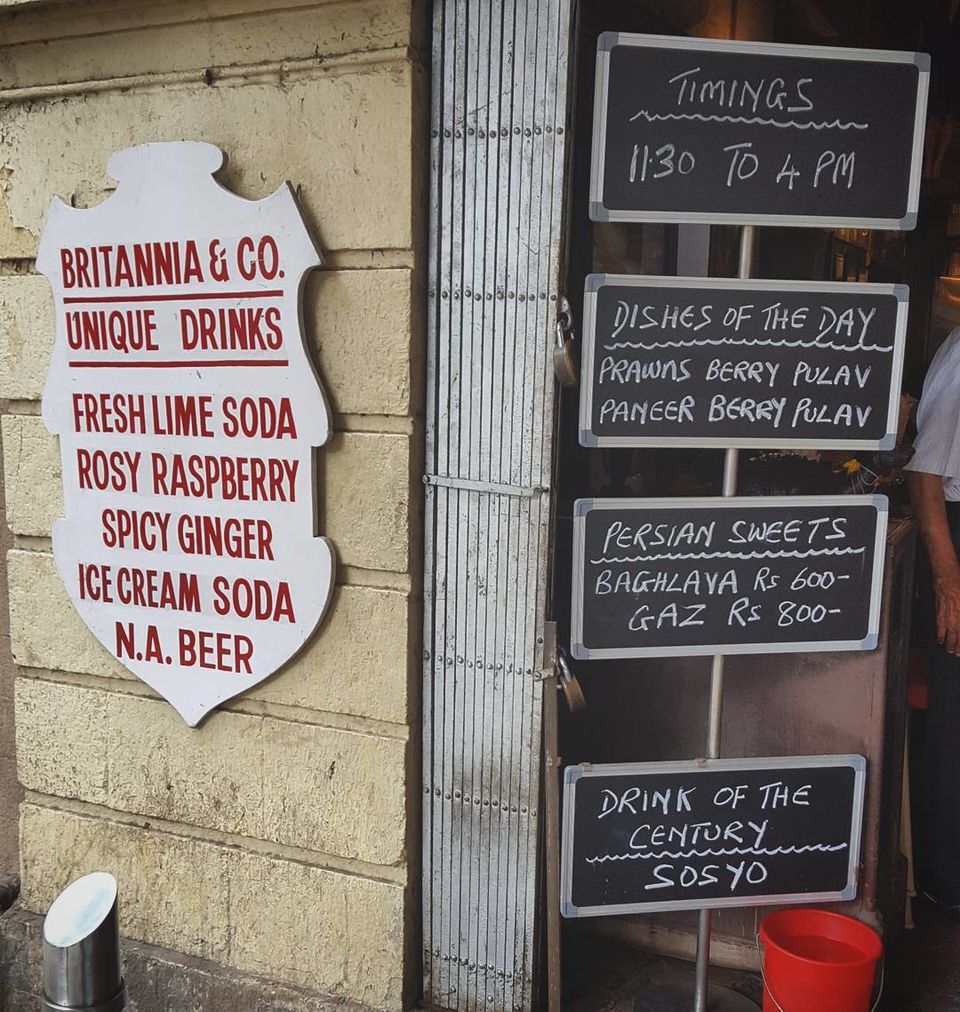 BRITANNIA & CO.
UNIQUE DRINKS
FRESH LIME SODA
ROSY RASPBERRY
SPICY GINGER
ICE CREAM SODA
N.A. BEER
TIMINGS
11·30 TO 4 PM
DISHES OF THE DAY
PRAWNS BERRY PULAV
PANEER BERRY PULAV
PERSIAN SWEETS
BAGHLAVA Rs 600-
GAZ Rs 800-
DRINK OF THE
CENTURY
SOSYO